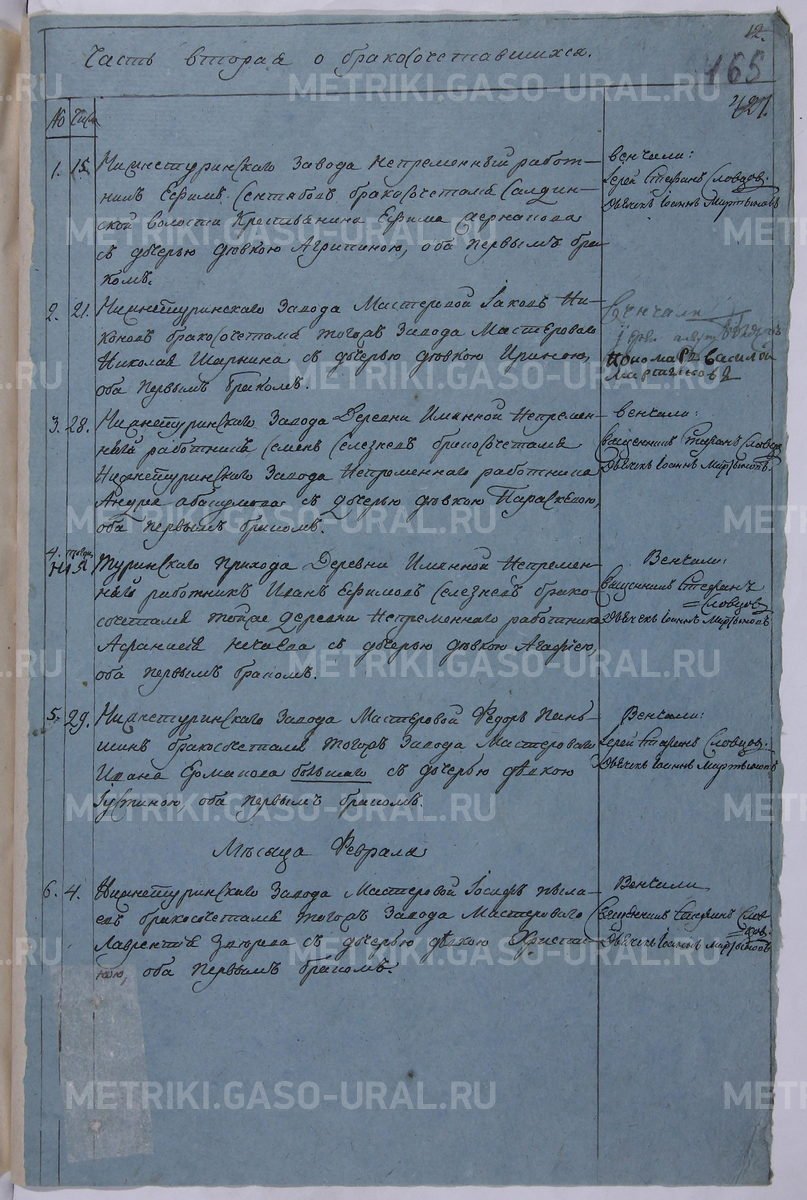 12.
Часть вторая о бракосочетавшихся.
165
427.
No Число
1. 15. Нижнетуринскаго Завода Непременный работ-
никъ Ефимъ бракосочетался Салдин-
ской волости Крестьянина Ефима
съ дочерью девкою Агрипиною, оба первымъ бра-
комъ.
венчали:
Іерей Стефанъ Словцов.
Дьячекъ Іоаннъ Мартыновъ
2. 21. Нижнетуринскаго Завода Мастеровой Іаковъ Ни-
коновъ бракосочетался тогожъ Завода Мастероваго
Николая съ дочерью девкою Ириною,
оба первымъ бракомъ.
Венчали
Пономарь Василей
Мартыновъ
3. 28. Нижнетуринскаго Завода Деревни Именной Непремен-
ный работникъ Семенъ Селезневъ бракосочетался
Нижнетуринскаго Завода Непременнаго работника
Андрея съ дочерью девкою Параскевою,
оба первымъ бракомъ.
венчали:
Священникъ Стефанъ Словцов
Дьячекъ Іоаннъ Мартыновъ.
4. Туринскаго Прихода Деревни Именной Непремен-
ный работникъ Иванъ Ефимовъ Селезневъ брако-
сочетался тойже деревни Непременнаго работника
Афанасія Нечаева съ дочерью девкою Агафіею,
оба первымъ бракомъ.
Венчали:
Священникъ Стефанъ
Словцов
Дьячекъ Іоаннъ Мартыновъ
5. 29. Нижнетуринскаго Завода Мастеровой Федоръ Пань-
шинъ бракосочетался тогожъ Завода Мастероваго
Ивана Ермакова большаго съ дочерью девкою
Іустиною, оба первымъ бракомъ.
Венчали:
Іерей Стефанъ Словцов.
Дьячекъ Іоаннъ Мартыновъ
Месяца Февраля
6. 4. Нижнетуринскаго Завода Мастеровой Іосифъ Пыла-
евъ бракосочетался тогожъ Завода Мастероваго
Лаврентія съ дочерью девкою Христи-
ною, оба первымъ бракомъ.
Венчали
Священникъ Стефанъ Слов-
цов.
Дьячекъ Іоаннъ Мартыновъ
METRIKI.GASO-URAL.RU